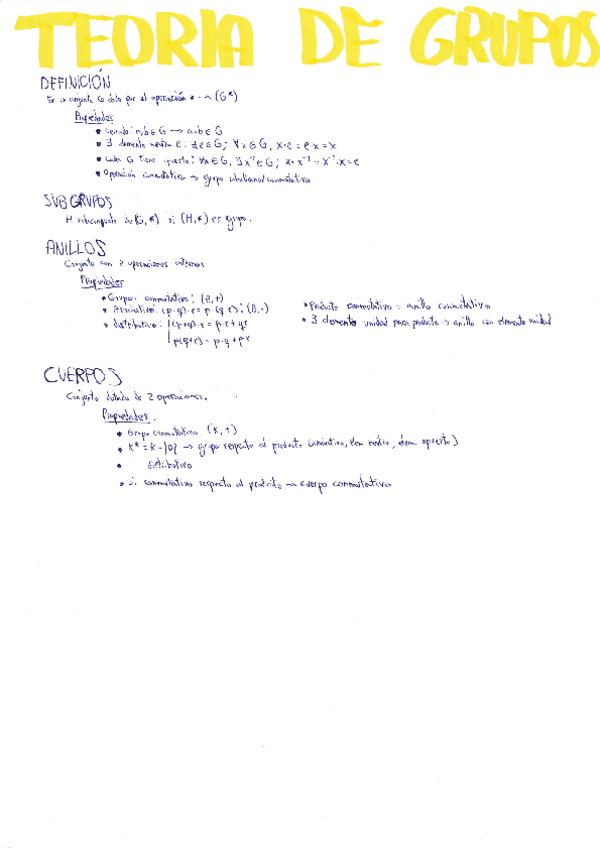 TEORIA DE GRUPOS
DEFINICIÓN
Es un conjunto G dado que al operación * → (G*)
Propiedades
a,b∈G → a*b∈G
∃ elemento neutro e. ∃e∈G; ∀x∈G, x*e = e*x = x
Cada G tiene opuesto: ∀x∈G, ∃x⁻¹∈G; x*x⁻¹ = x⁻¹*x = e
Operación conmutativa → grupo abeliano/conmutativo
SUBGRUPOS
H subconjunto de (G,*) si (H,*) es grupo.
ANILLOS
Conjunto con 2 operaciones internas
Propiedades
Grupo conmutativo: (,+)
Asociativo: (p·q)·r = p·(q·r): (,·)
distributivo: (p+q)·r = p·r + qr
p(q+r) = p·q + pr
Producto conmutativo → anillo conmutativo
∃ elemento unidad para producto → anillo con elemento unidad
CUERPOS
Conjunto dotado de 2 operaciones.
Propiedades.
Grupo conmutativo (K,+)
K* = K-{0} → grupo respecto al producto (asociativo, elem neutro, elem opuesto)
distributivo
si conmutativo respecto al producto → cuerpo conmutativo